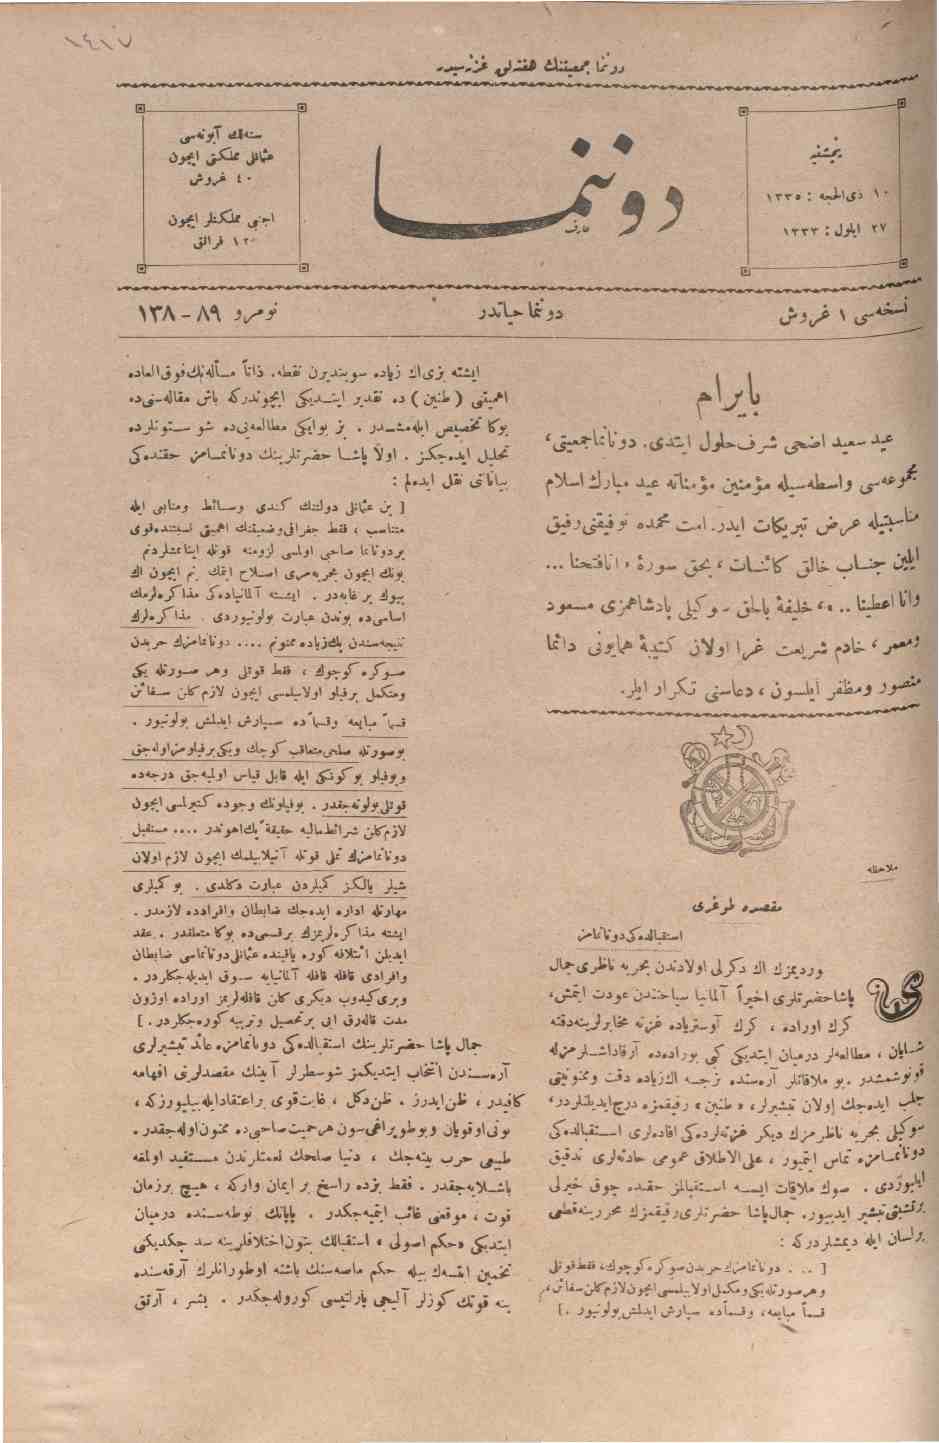 ١٤١٧
دوننما جمعیتنك هفته‌لق غزته‌سیدر
پنجشنبه
١٠ ذی الحجه : ١٣٣٥
٢٧ ایلول : ١٣٣٣
دوننما
عارف
سنه‌لك آبونه‌سی
عثمانلی مملكتی ایچون
٤٠ غروش
اجنبی مملكتلر ایچون
١٢ فرانق
نسخه‌سی ١ غروش
دوننما حیاتدر
نومرو ٨٩ - ١٣٨
بایرام
عید سعید اضحی شرف حلول ایتدی. دونانما جمعیتی،
مجموعه‌سی واسطه‌سیله مؤمنین مؤمناته عید مبارك اسلام
مناسبتیله عرض تبریكات ایدر. امت محمده توفیقنی رفیق
ایلین جناب خالق كائنات، بحق سورهٔ « انا فتحنا ...
وانا اعطینا .. »، خلیفهٔ بالحق سوكیلی پادشاهمزی مسعود
ومعمر، خادم شریعت غرا اولان كتیبهٔ همایونی دائما
منصور ومظفر ایلسون، دعاسنی تكرار ایلر.
ملاحظه
مقصده طوغری
استقبالده‌كی دونانمامز
وردیمزك اك دكرلی اولادندن بحریه ناظری جمال
پاشا حضرتلری اخیراً آلمانیا سیاحتندن عودت ایتمش،
كرك اوراده ، كرك آوستریاده غزته مخابرلرینه دقته
شایان ، مطالعه‌لر درمیان ایتدیكی كبی بوراده‌ده آرقاداشلرمزله
قونوشمشدر. بو ملاقاتلر آره‌سنده بزجه اك زیاده دقت وممنونیتی
جلب ایده‌جك اولان تبشیرلر، « طنین » رفیقمزه درج ایدیلنلردر،
سوكیلی بحریه ناظرمزك دیكر غزته‌لرده‌كی افاده‌لری استقبالده‌كی
دونانمامزه تماس ایتمیور ، علی الاطلاق عمومی حادثه‌لری تدقیق
ایلیوردی . صوك ملاقات ایسه استقبالمز حقنده چوق خیرلی
تبشیر ایدییور. جمال پاشا حضرتلری رفیقمزك محررینه قطعی
بر لسان ایله دیمشلردركه :
[ ... دونانمامزك حربدن سوكره كوچوك، فقط قوتلی
وهر صورتله یكی ومكمل اولابیلمسی ایچون لازم كلن سفائن،
قسماً مبایعه، وقسماً ده سپارش ایدلمش بولونیور . ]
ایشته بزی اك زیاده سویندیرن نقطه. ذاتاً مسأله‌نك فوق العاده
اهمیتنی ( طنین ) ده تقدیر ایتدیكی ایچوندركه باش مقاله‌سنی ده
بوكا تخصیص ایله‌مشدر . بز بوایكی مطالعه‌یی ده شو ستونلرده
تحلیل ایده‌جكز . اولا پاشا حضرتلرینك دونانمامز حقنده‌كی
بیاناتی نقل ایده‌لم :
[ بن عثمانلی دولتنك كندی وسائط ومنابعی ایله
متناسب ، فقط جغرافی وضعیتنك اهمیتی نسبتنده قوی
بر دونانما صاحبی اولمسی لزومنه قوتله اینانمشلردنم
بونك ایچون بحریه‌مزی اصلاح ایتمك بنم ایچون اك
بیوك بر غایه‌در . ایشته آلمانیاده‌كی مذاكره‌لرمك
اساسی‌ده بوندن عبارت بولونیوردی . مذاكره‌لرك
نتیجه‌سندن پك زیاده ممنونم .... دونانمامزك حربدن
صوكره كوچوك ، فقط قوتلی وهر صورتله یكی
ومكمل بر فیلو اولابیلمسی ایچون لازم كلن سفائن
قسماً مبایعه وقسماً ده سپارش ایدلمش بولونیور .
بو صورتله صلحی متعاقب كوچك ویكی بر فیلومز اوله‌جق
وبو فیلو بوكونكی ایله قابل قیاس اولمیه‌جق درجه‌ده
قوتلی بولونه‌جقدر . بو فیلونك وجوده كتیرلمسی ایچون
لازم كلن شرائط مالیه حقیقةً پك اهوندر .... مستقبل
دونانمامزك تملی قوتله آتیلابیلمك ایچون لازم اولان
شیلر یالكز كمیلردن عبارت دكلدی . بو كمیلری
مهارتله اداره ایده‌جك ضابطان وافرادده لازمدر .
ایشته مذاكره‌لریمزك بر قسمی‌ده بوكا متعلقدر . عقد
ایدیلن ائتلافه كوره یاقینده عثمانلی دونانماسی ضابطان
وافرادی قافله قافله آلمانیایه سوق ایدیله‌جكلردر .
وبری كیدوب دیكری كلن قافله‌لریمز اوراده اوزون
مدت قاله‌رق ایی بر تحصیل وتربیه كوره‌جكلردر . ]
جمال پاشا حضرتلرینك استقبالده‌كی دونانمامزه عائد تبشیرلری
آره‌سندن انتخاب ایتدیكمز شو سطرلر آتینك مقصدلرینی افهامه
كافیدر ، ظن ایدرز . ظن دكل ، غایت قوی بر اعتقاد ایله بیلیورزكه ،
بونی اوقویان وبو طوپراغی سون هر حمیت صاحبی ده ممنون اوله‌جقدر.
طبیعی حرب بیته‌جك ، دنیا صلحك نعمتلرندن مستفید اولمغه
باشلایه‌جقدر . فقط بزده راسخ بر ایمان واركه ، هیچ بر زمان
قوت ، موقعنی غائب ایتمیه‌جكدر . پاپانك نوطه‌سنده درمیان
ایتدیكی « حكم اصولی » استقبالك بتون اختلافلرینه سد چكدیكنی
تخمین ایتسه‌ك بیله حكم ماصه‌سنك باشنه اوطورانلرك آرقه‌سنده
ینه قوتك كوزلر آلیجی پارلتیسی كوروله‌جكدر . بشر ، آرتق